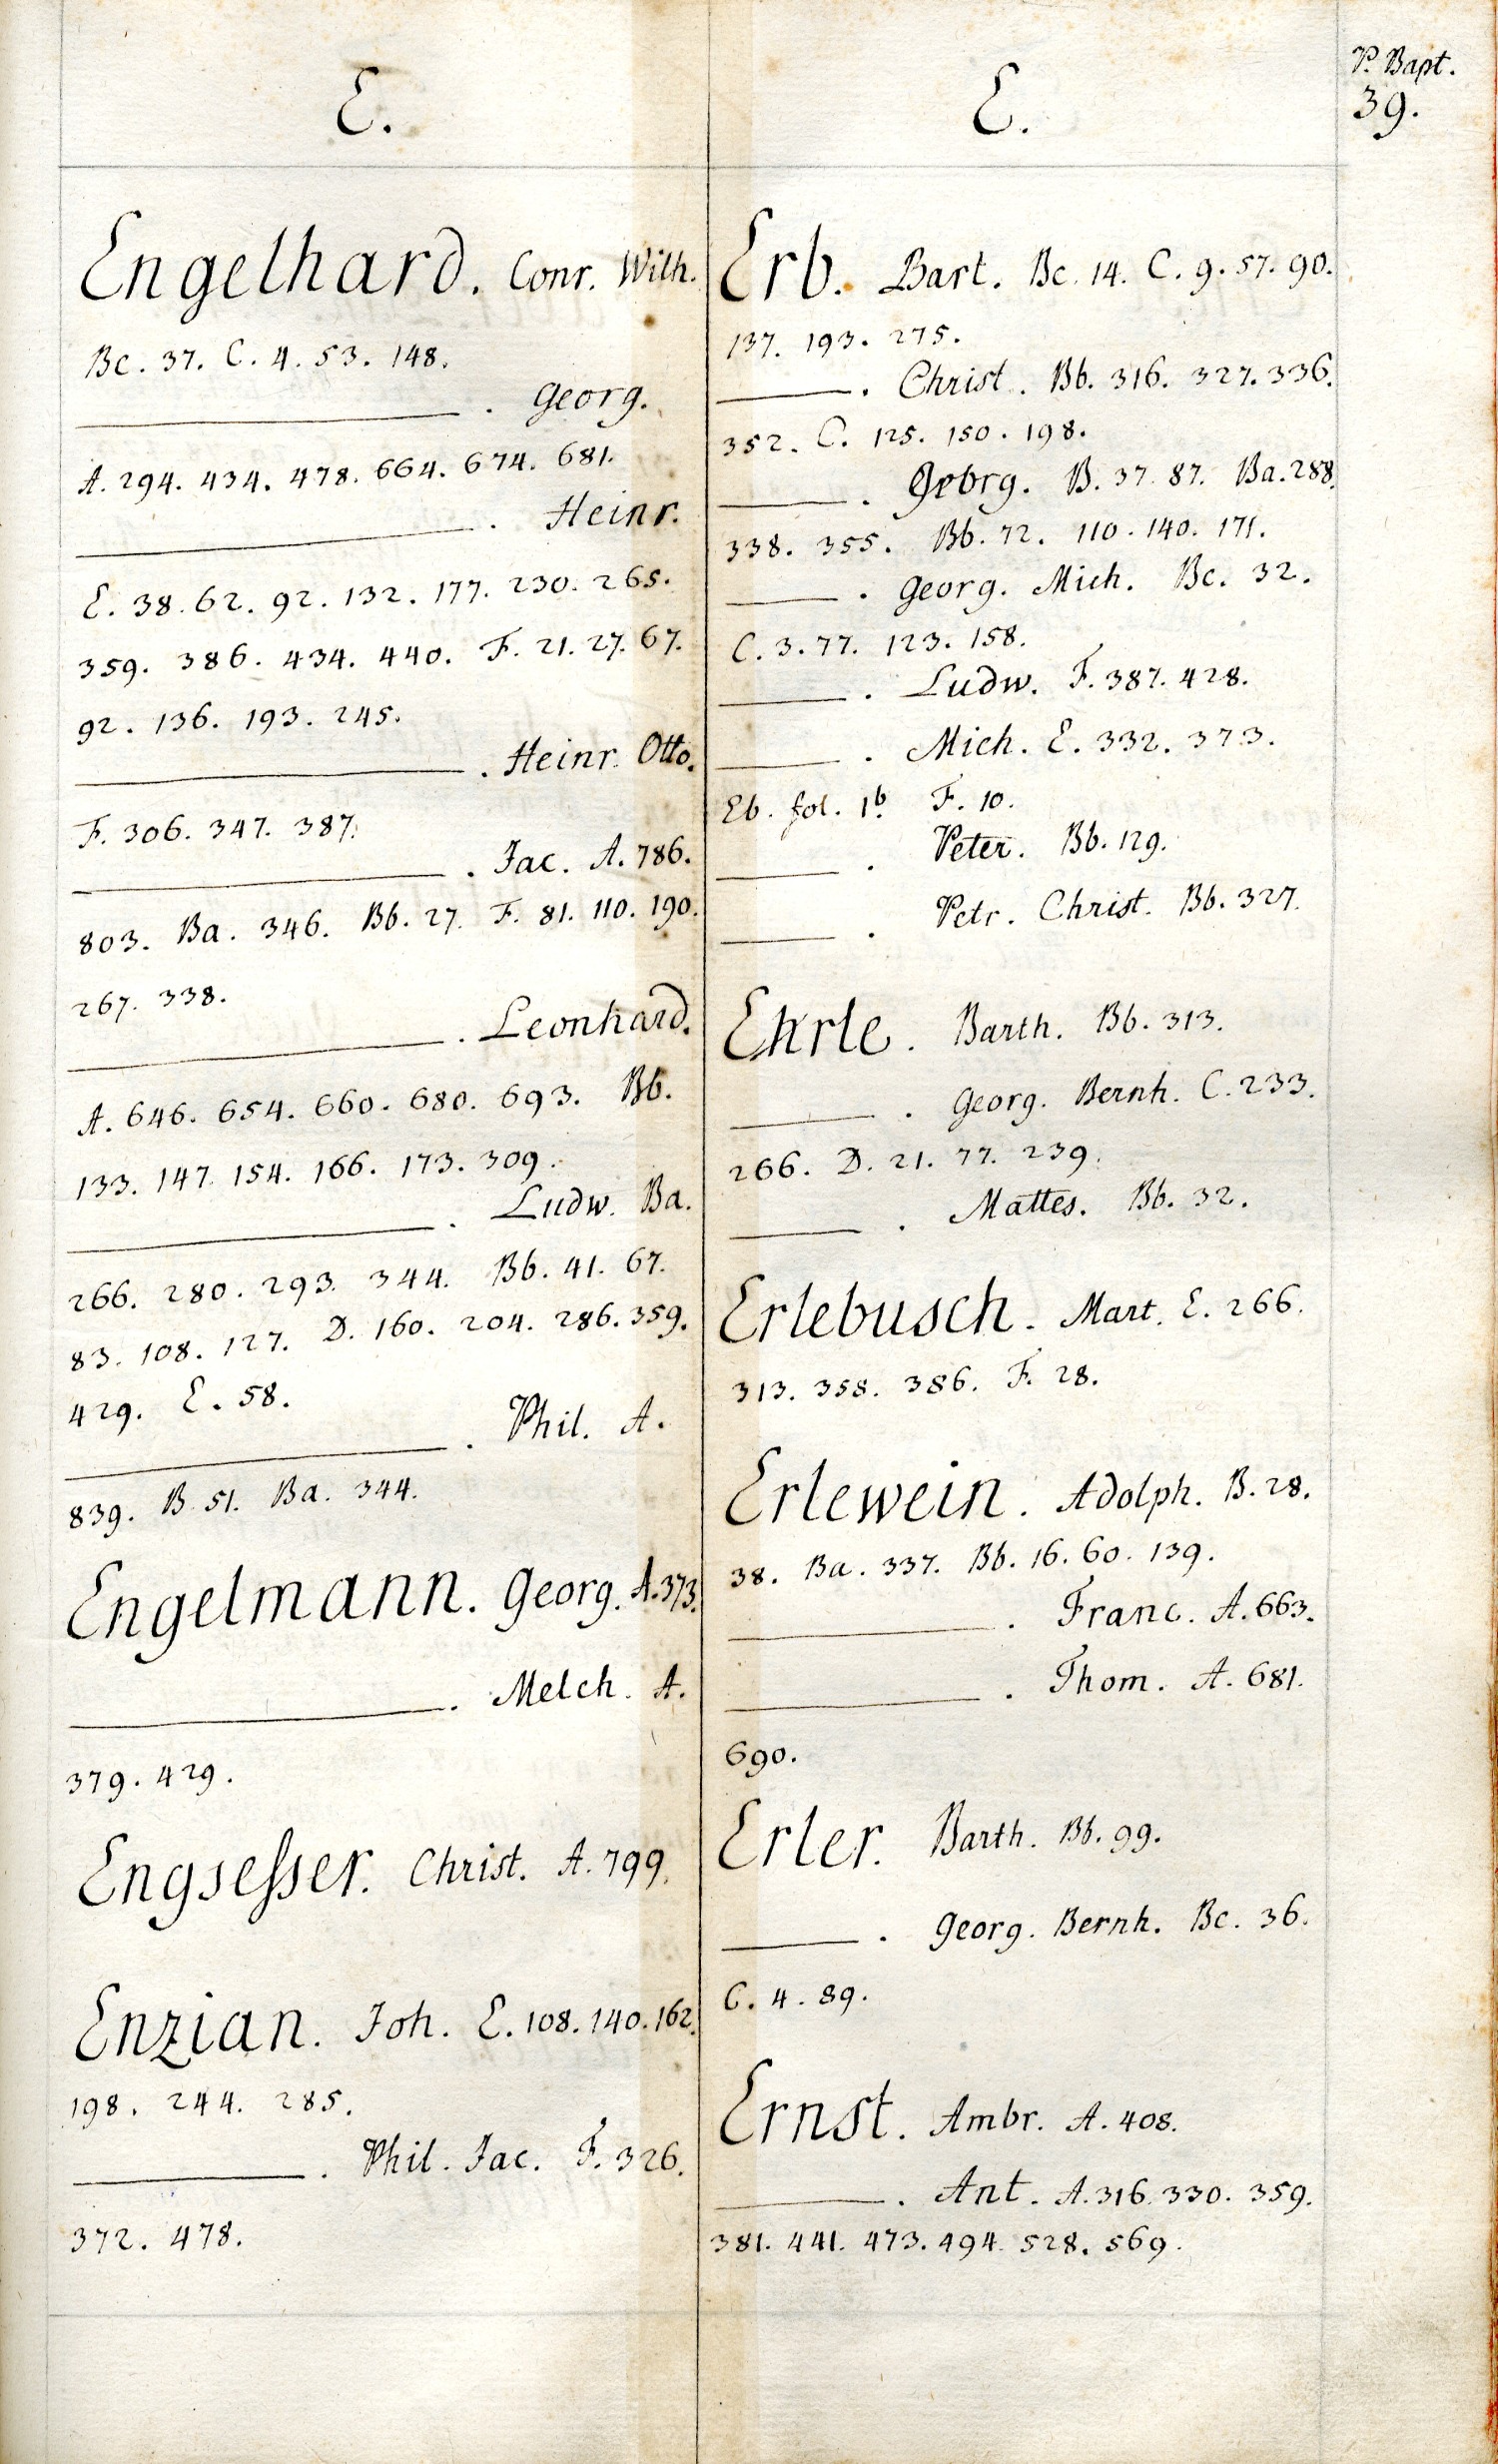 E.
Engelhard. Conr. Wilh.
Bc. 37. C. 4. 53. 148.
———. Georg.
A. 294. 434. 478. 664. 674. 681.
———. Heinr.
E. 38. 62. 92. 132. 177. 230. 265.
359. 386. 434. 440. F. 21. 27. 67.
92. 136. 193. 245.
———. Heinr. Otto.
F. 306. 347. 387.
———. Jac. A. 786.
803. Ba. 346. Bb. 27. F. 81. 110. 190.
267. 338.
———. Leonhard.
A. 646. 654. 660. 680. 693. Bb.
133. 147. 154. 166. 173. 309.
———. Ludw. Ba.
266. 280. 293. 344. Bb. 41. 67.
83. 108. 127. D. 160. 204. 286. 359.
429. E. 58.
———. Phil. A.
839. B. 51. Ba. 344.
Engelmann. Georg. A. 373.
———. Melch. A.
379. 429.
Engsesser. Christ. A. 799.
Enzian. Joh. E. 108. 140. 162.
198. 244. 285.
———. Phil. Jac. F. 326.
372. 478.
E.
Erb. Bart. Bc. 14. C. 9. 57. 90.
137. 193. 275.
———. Christ. Bb. 316. 327. 336.
352. C. 125. 150. 198.
———. Georg. B. 37. 87. Ba. 288.
338. 355. Bb. 72. 110. 140. 171.
———. Georg. Mich. Bc. 32.
C. 3. 77. 123. 158.
———. Ludw. F. 387. 428.
———. Mich. E. 332. 373.
Eb. fol. 1b. F. 10.
———. Peter. Bb. 129.
———. Petr. Christ. Bb. 327.
Ehrle. Barth. Bb. 313.
———. Georg. Bernh. C. 233.
266. D. 21. 77. 239.
———. Mattes. Bb. 32.
Erlebusch. Mart. E. 266.
313. 358. 386. F. 28.
Erlewein. Adolph. B. 28.
38. Ba. 337. Bb. 16. 60. 139.
———. Franc. A. 663.
———. Thom. A. 681.
690.
Erler. Barth. Bb. 99.
———. Georg. Bernh. Bc. 36.
C. 4. 89.
Ernst. Ambr. A. 408.
———. Ant. A. 316. 330. 359.
381. 441. 473. 494. 528. 569.
P. Bapt.
39.